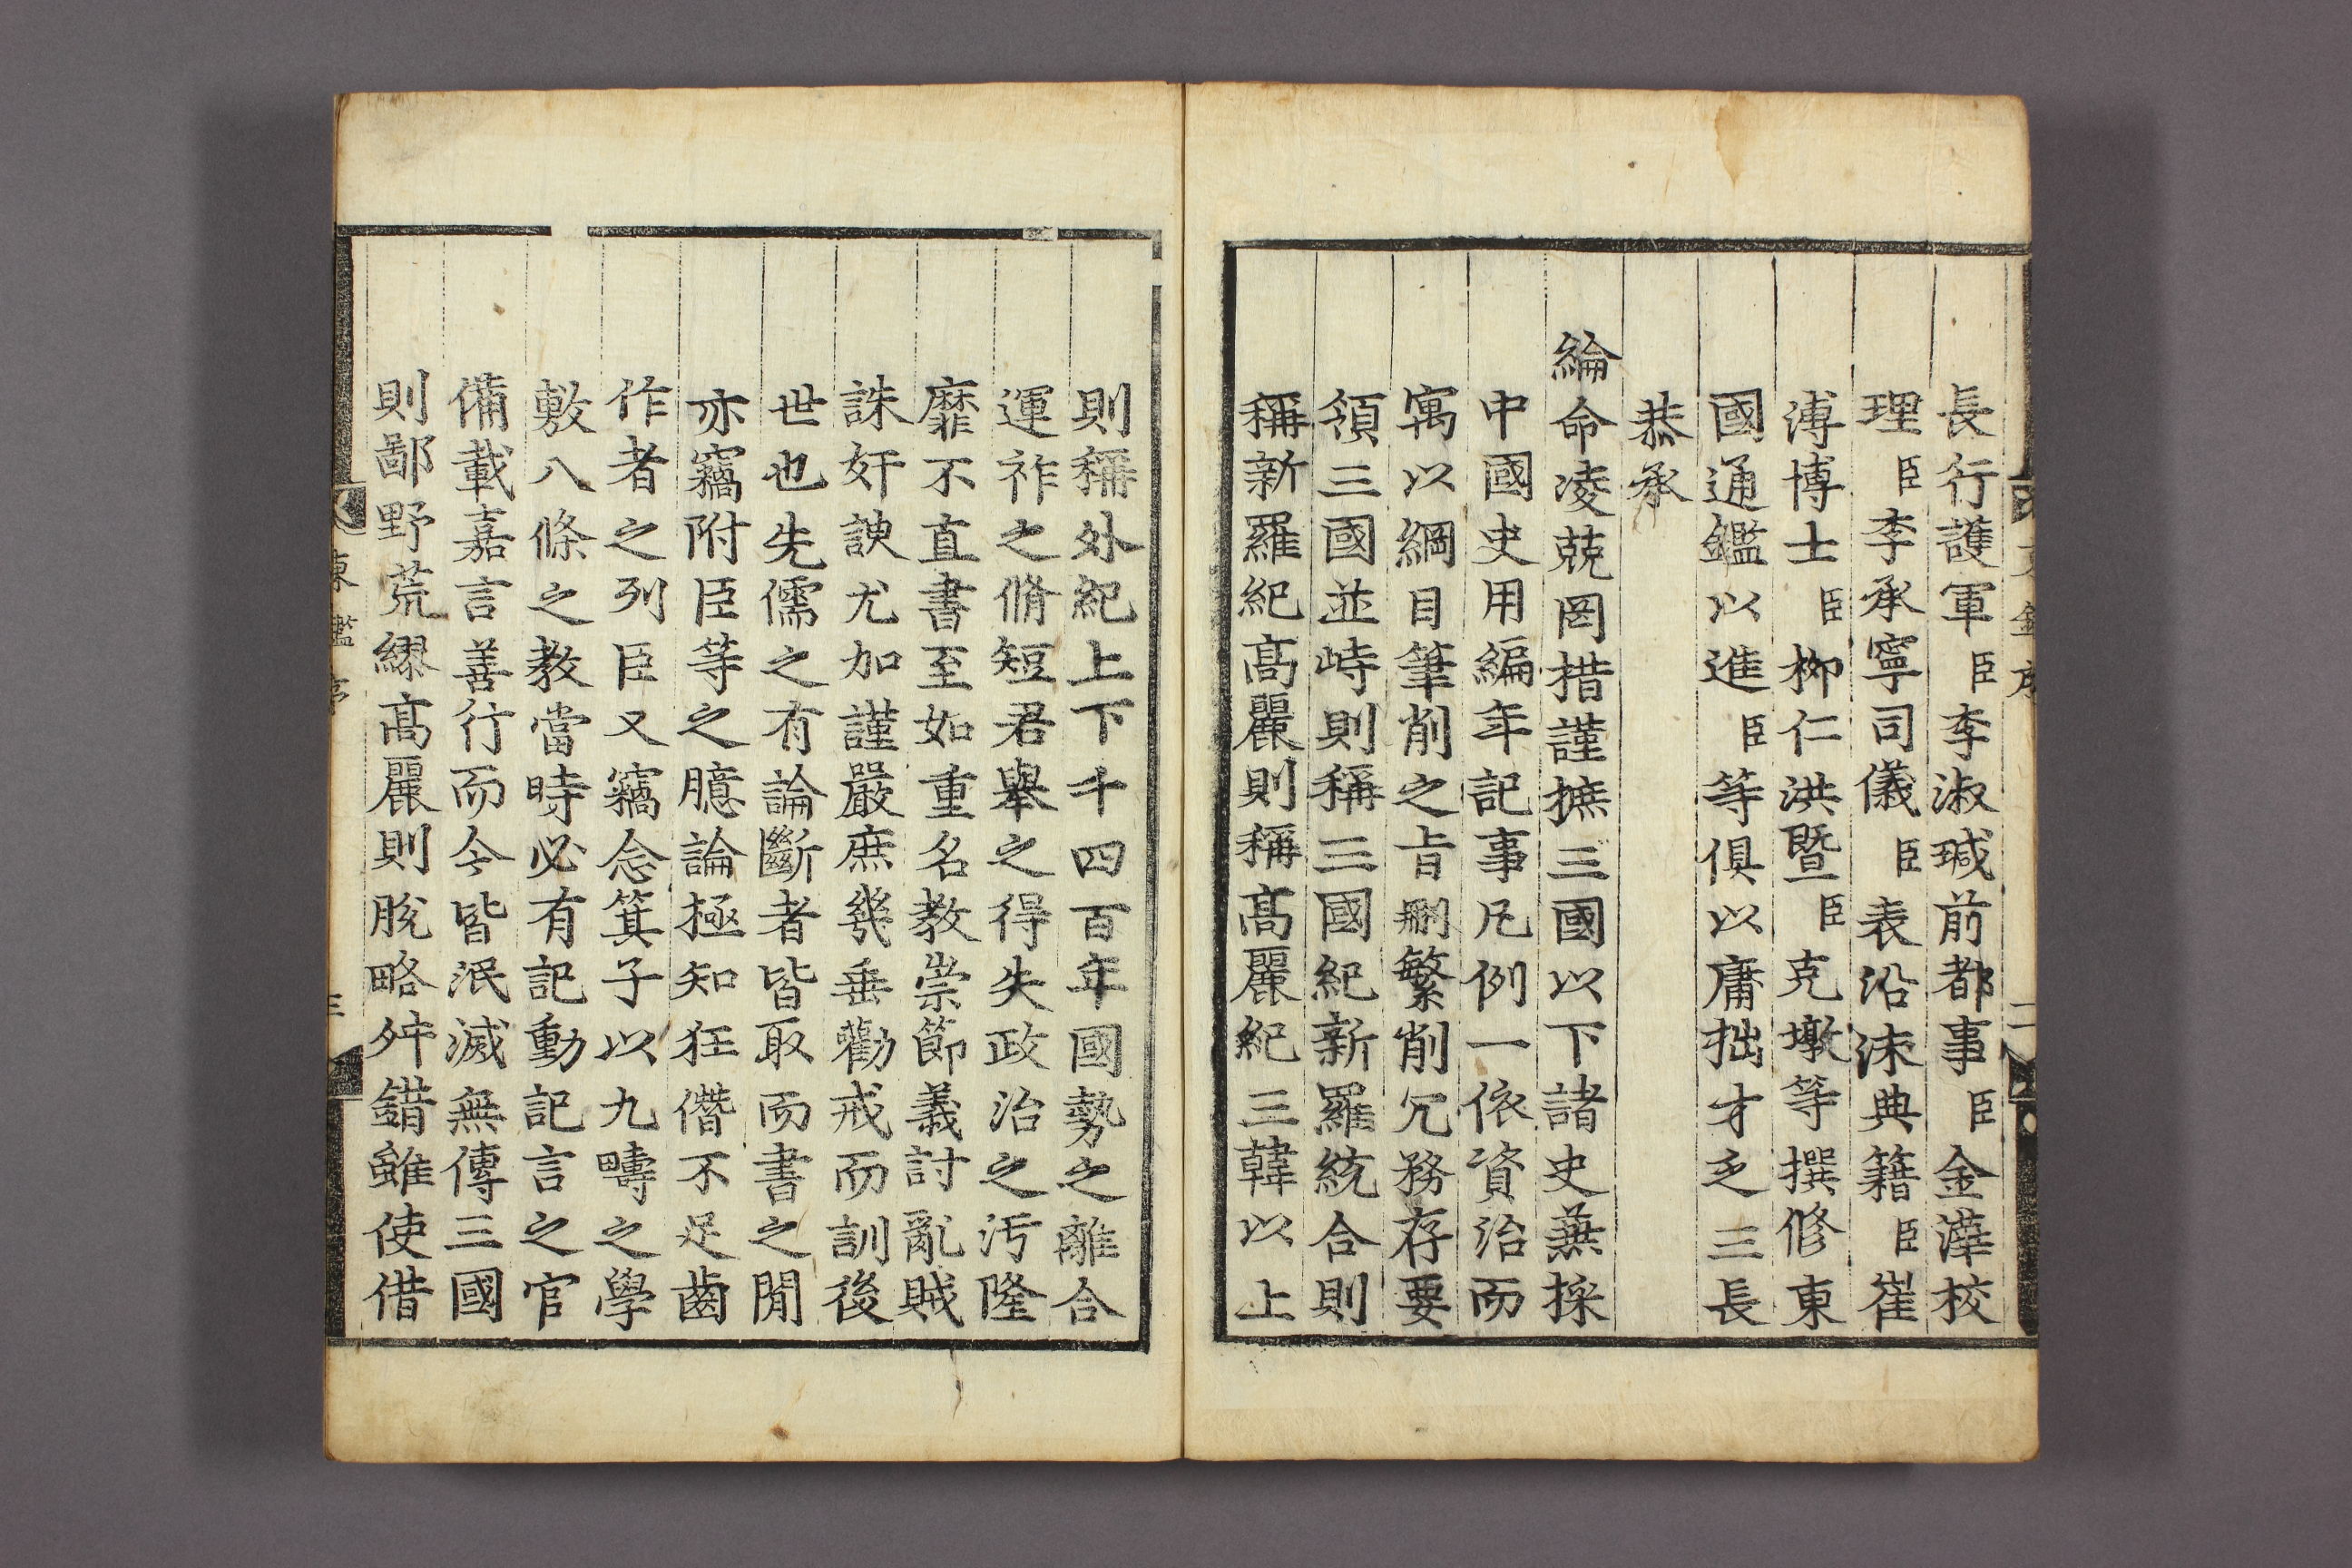 長行護軍臣李淑瑊前都事臣金澕校
理臣李承寧司儀臣表沿沫典籍臣崔
溥博士臣柳仁洪曁臣克墩等撰修東
國通鑑以進臣等俱以庸拙才乏三長
恭承
綸命凌兢罔措謹摭三國以下諸史兼採
中國史用編年記事凡例一依資治而
寓以綱目筆削之旨刪繁削冗務存要
領三國並峙則稱三國紀新羅統合則
稱新羅紀高麗則稱高麗紀三韓以上
則稱外紀上下千四百年國勢之離合
運祚之脩短君擧之得失政治之汚隆
靡不直書至如重名敎崇節義討亂賊
誅奸諛尤加謹嚴庶幾垂勸戒而訓後
世也先儒之有論斷者皆取而書之閒
亦竊附臣等之臆論極知狂僭不足齒
作者之列臣又竊念箕子以九疇之學
敷八條之敎當時必有記動記言之官
備載嘉言善行而今皆泯滅無傳三國
則鄙野荒繆高麗則脫略舛錯雖使借
東鑑序
三